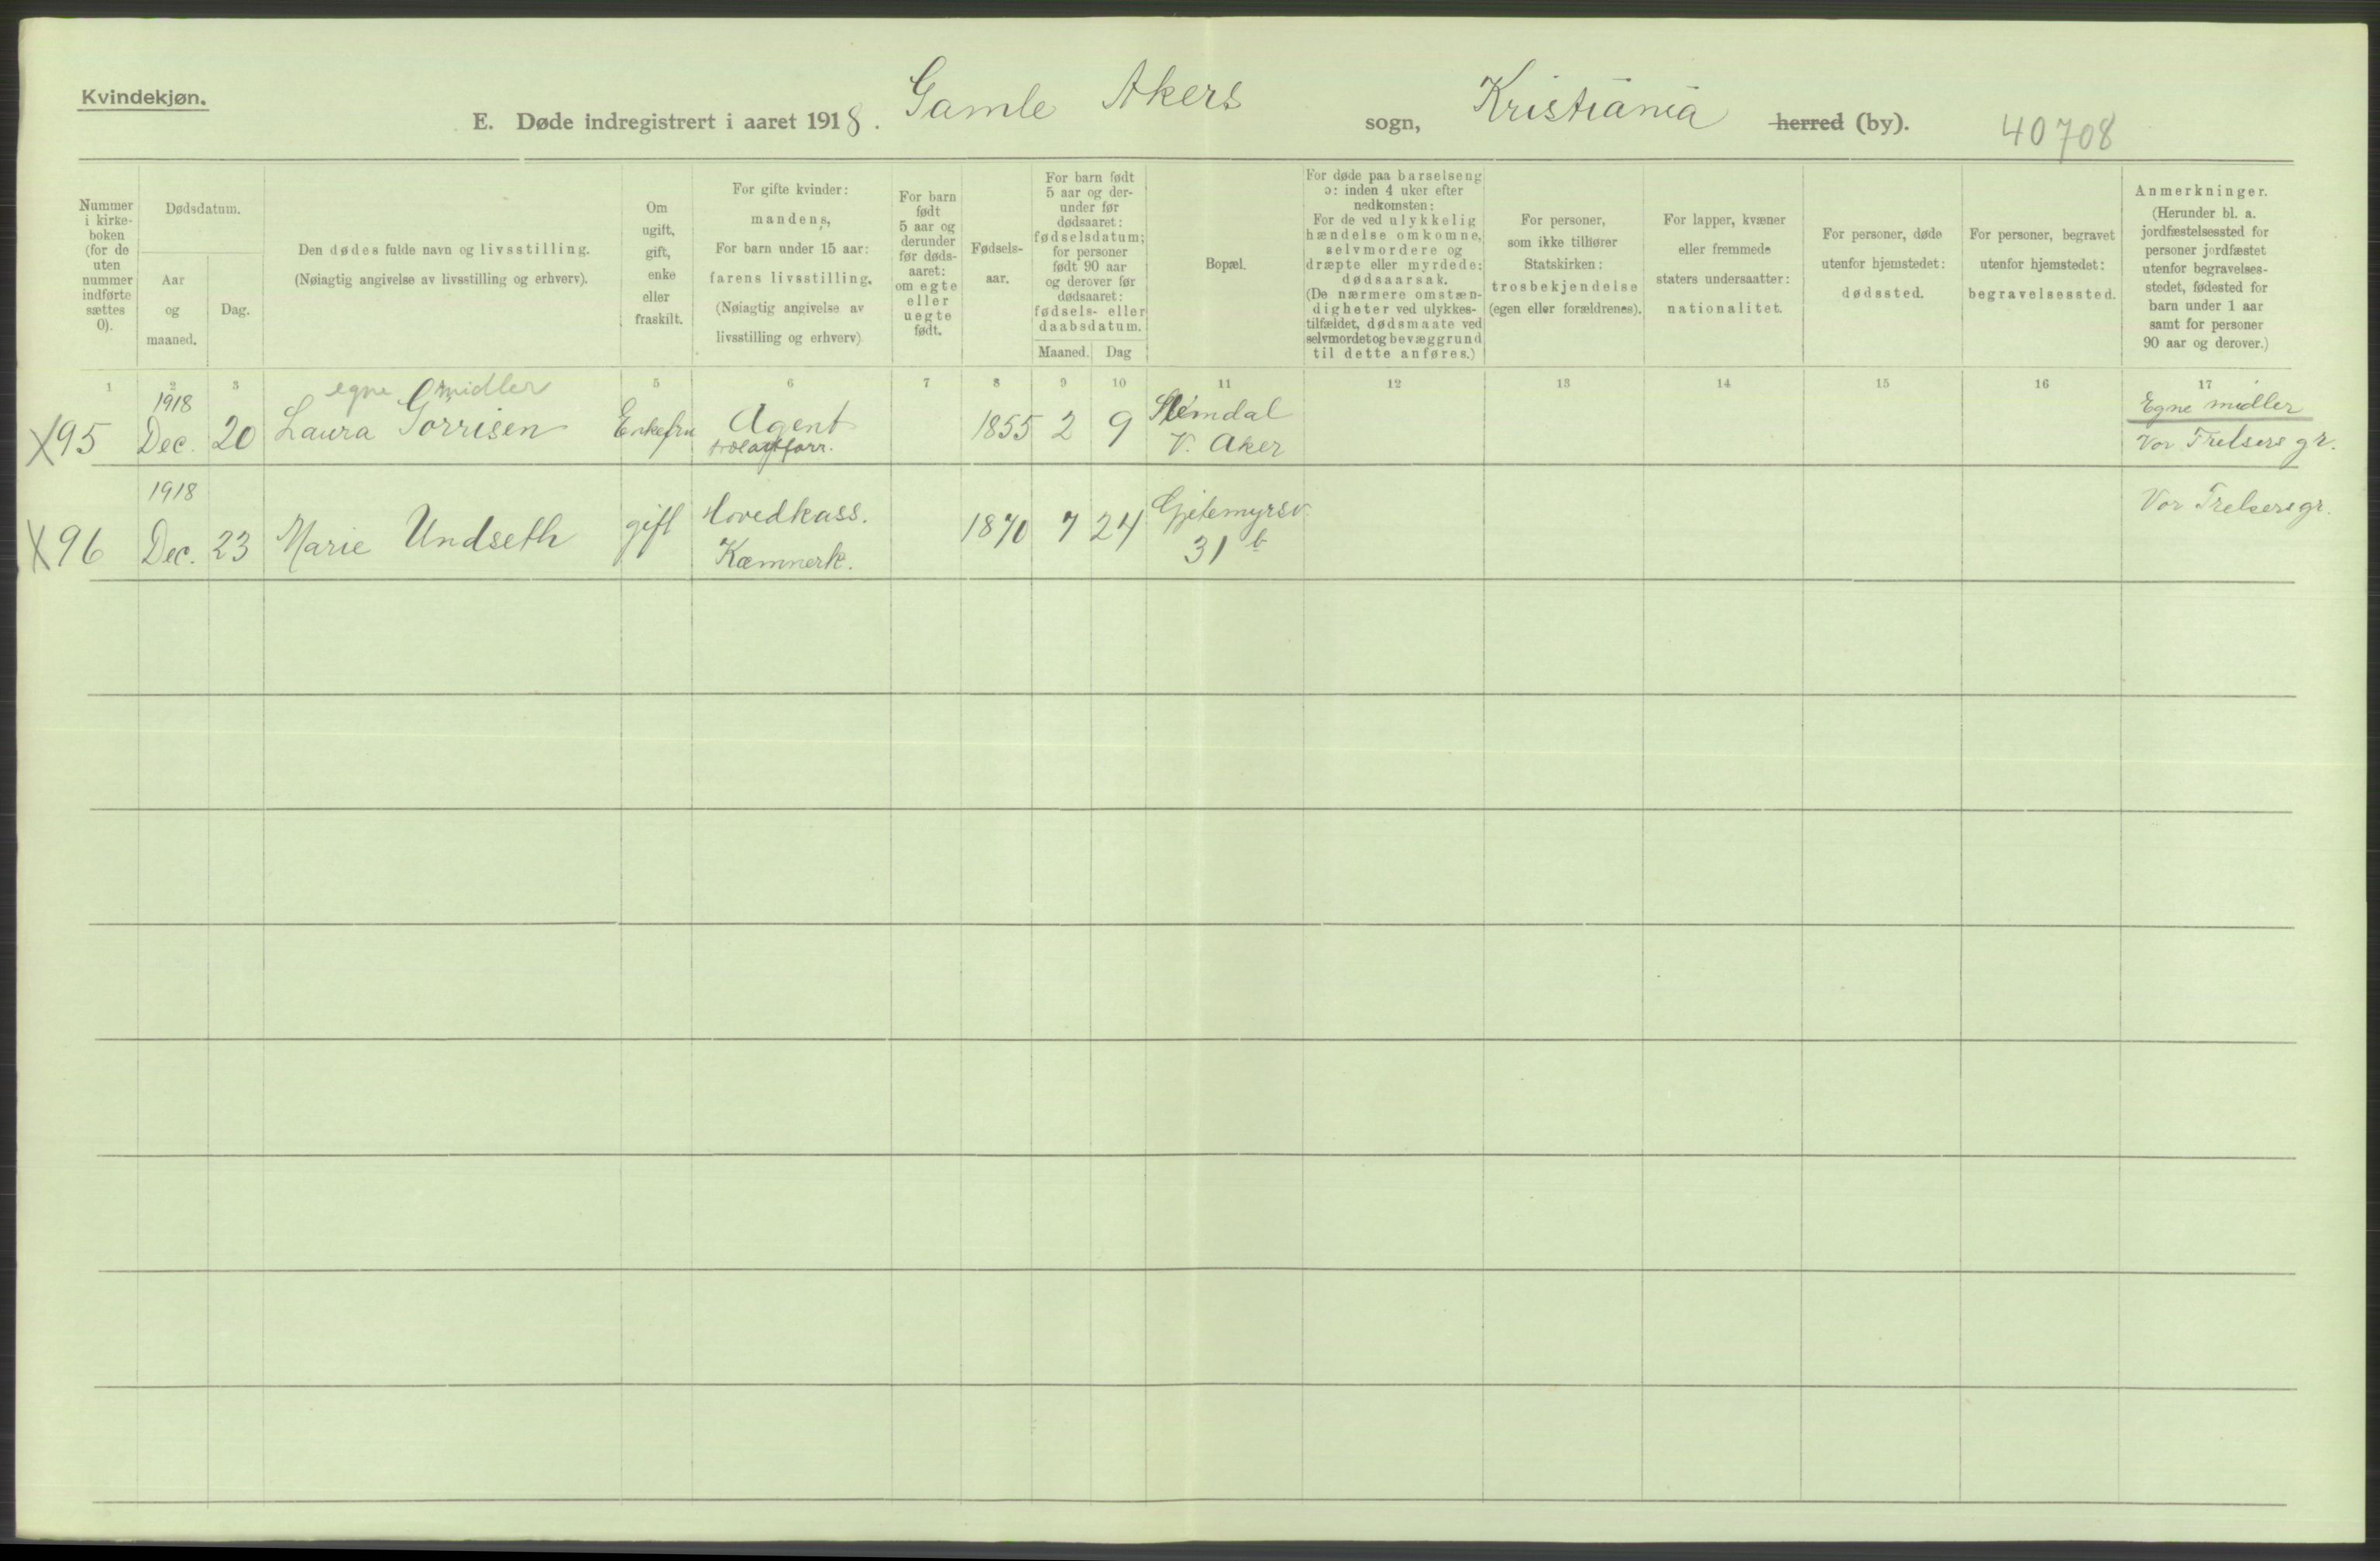 Kvindekjøn.
E. Døde indregistrert i aaret 1918. Gamle Akers sogn, Kristiania herred (by). 40708
Nummer
i kirke-
boken
(for de
uten
nummer
indførte
sættes
0).
Dødsdatum.
Aar
og
maaned.
Dag.
Den dødes fulde navn og livsstilling.
(Nøiagtig angivelse av livsstilling og erhverv).
Om
ugift,
gift,
enke
eller
fraskilt.
For gifte kvinder:
mandens,
For barn under 15 aar:
farens livsstilling.
(Nøiagtig angivelse av
livsstilling og erhverv)
For barn
født
5 aar og
derunder
før døds-
aaret:
om egte
eller
uegte
født.
Fødsels-
aar.
For barn født
5 aar og der-
under før
dødsaaret:
fødselsdatum;
for personer
født 90 aar
og derover før
dødsaaret:
fødsels- eller
daabsdatum.
Maaned.
Dag
Bopæl.
For døde paa barselseng
ɔ: inden 4 uker efter
nedkomsten:
For de ved ulykkelig
hændelse omkomne,
selvmordere og
dræpte eller myrdede:
dødsaarsak.
(De nærmere omstæn-
digheter ved ulykkes-
tilfældet, dødsmaate ved
selvmordet og bevæggrund
til dette anføres.)
For personer,
som ikke tilhører
Statskirken:
trosbekjendelse
(egen eller forældrenes).
For lapper, kvæner
eller fremmede
staters undersaatter:
nationalitet.
For personer, døde
utenfor hjemstedet:
dødssted.
For personer, begravet
utenfor hjemstedet:
begravelsessted.
Anmerkninger.
(Herunder bl. a.
jordfæstelsessted for
personer jordfæstet
utenfor begravelses-
stedet, fødested for
barn under 1 aar
samt for personer
90 aar og derover.)
1 2 3 5 6 7 8 9 10 11 12 13 14 15 16 17
1918 egne midler Slemdal Egne midler
X 95 Dec. 20 Laura Gorrisen Enkefru Agent 1855 2 9 V. Aker Vor Frelsers gr.
1918 Hovedkass. Gjetemyrsv. Vor Frelsers gr.
X 96 Dec. 23 Marie Undseth gift Kæmnerk. 1870 7 24 31 b